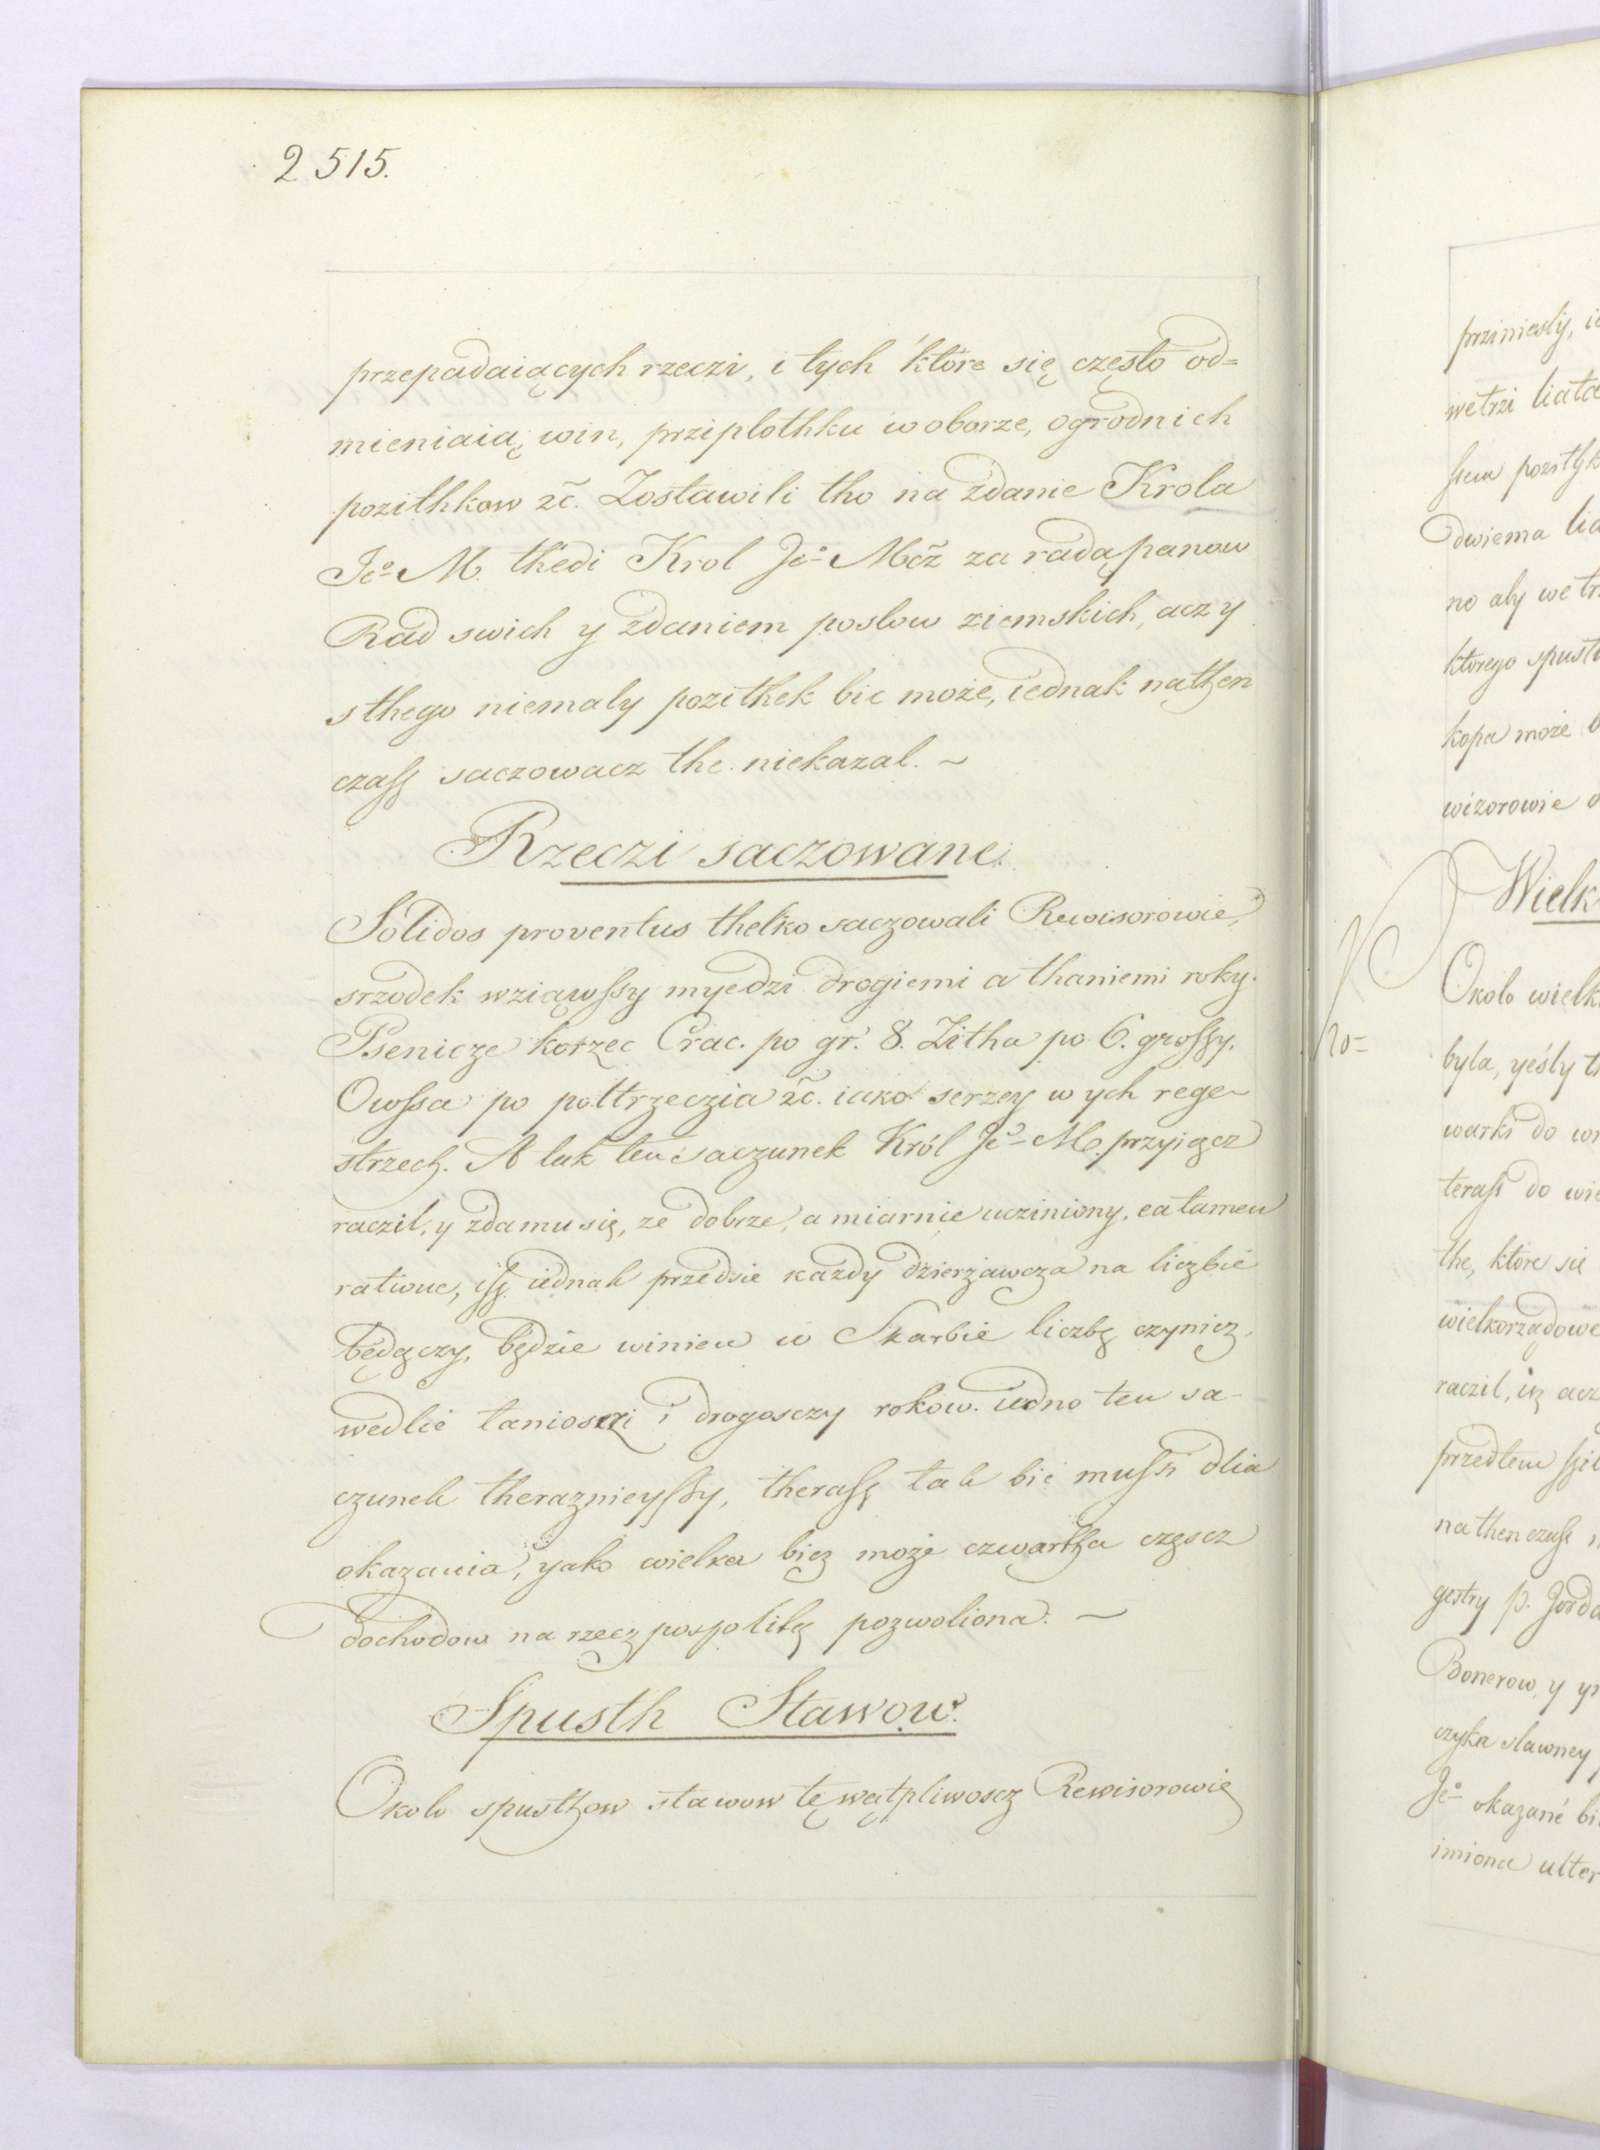 2515.
przepadaiących rzeczi, i tych które się często od=
mieniaią, win, prziplothku w oborze, ogrodnich
pozithkow &c̃. Zostawili tho na zdanie Krola
Jeº M. thedi Krol Jeº Mcz̃ za radą panow
Rad swich y zdaniem poslow ziemskich, acz y
sthego niemaly pozithek bic może, iednak nathen
czasſ saczowacz the niekazal. ~
Rzeczi saczowane.
Solidos proventus thelko saczowali Rewisorowie,
srzodek wziąwſsy myedzi drogiemi a thaniemi roky.
Psenicze korzec Crac. po gr. 8. Zitha po 6. groſsy.
Owſsa po połtrzeczia &c̃. iako serzey w ych rege-
strzech. A tak ten saczunek Król Jeº M. przyiącz
raczil, y zda mu się, ze dobrze, a miarnie uziniony, ea tamen
ratione, iſz iednak przedsie kazdy dzierżawcza na liczbie
będączy, będzie winien w Skarbie liczbę czynicz,
wedlie taniosczi i drogosczy rokow. iedno ten sa-
czunek theraznieyſsy, theraſz tak bić muſsi dlia
okazania, yako wielka bicz może czwartha częscz
dochodow na rzecz pospolitą pozwoliona. ~
Spusth Stawow.
Okolo spusthow stawow tę wątpliwoscz Rewisorowie
prziniesly,
wetrzi
dwiema
no aby
ktorego
kopa może
wizorowie
Wielk
Okolo wielk
byla, yeśly
warki do
do
the, które się
wielkorządowe
raczil, iz
przedtem
nathenczaſs
gestry p. Jorda
Bonerow, y
czyka slawney
Jeº okazané
imiona